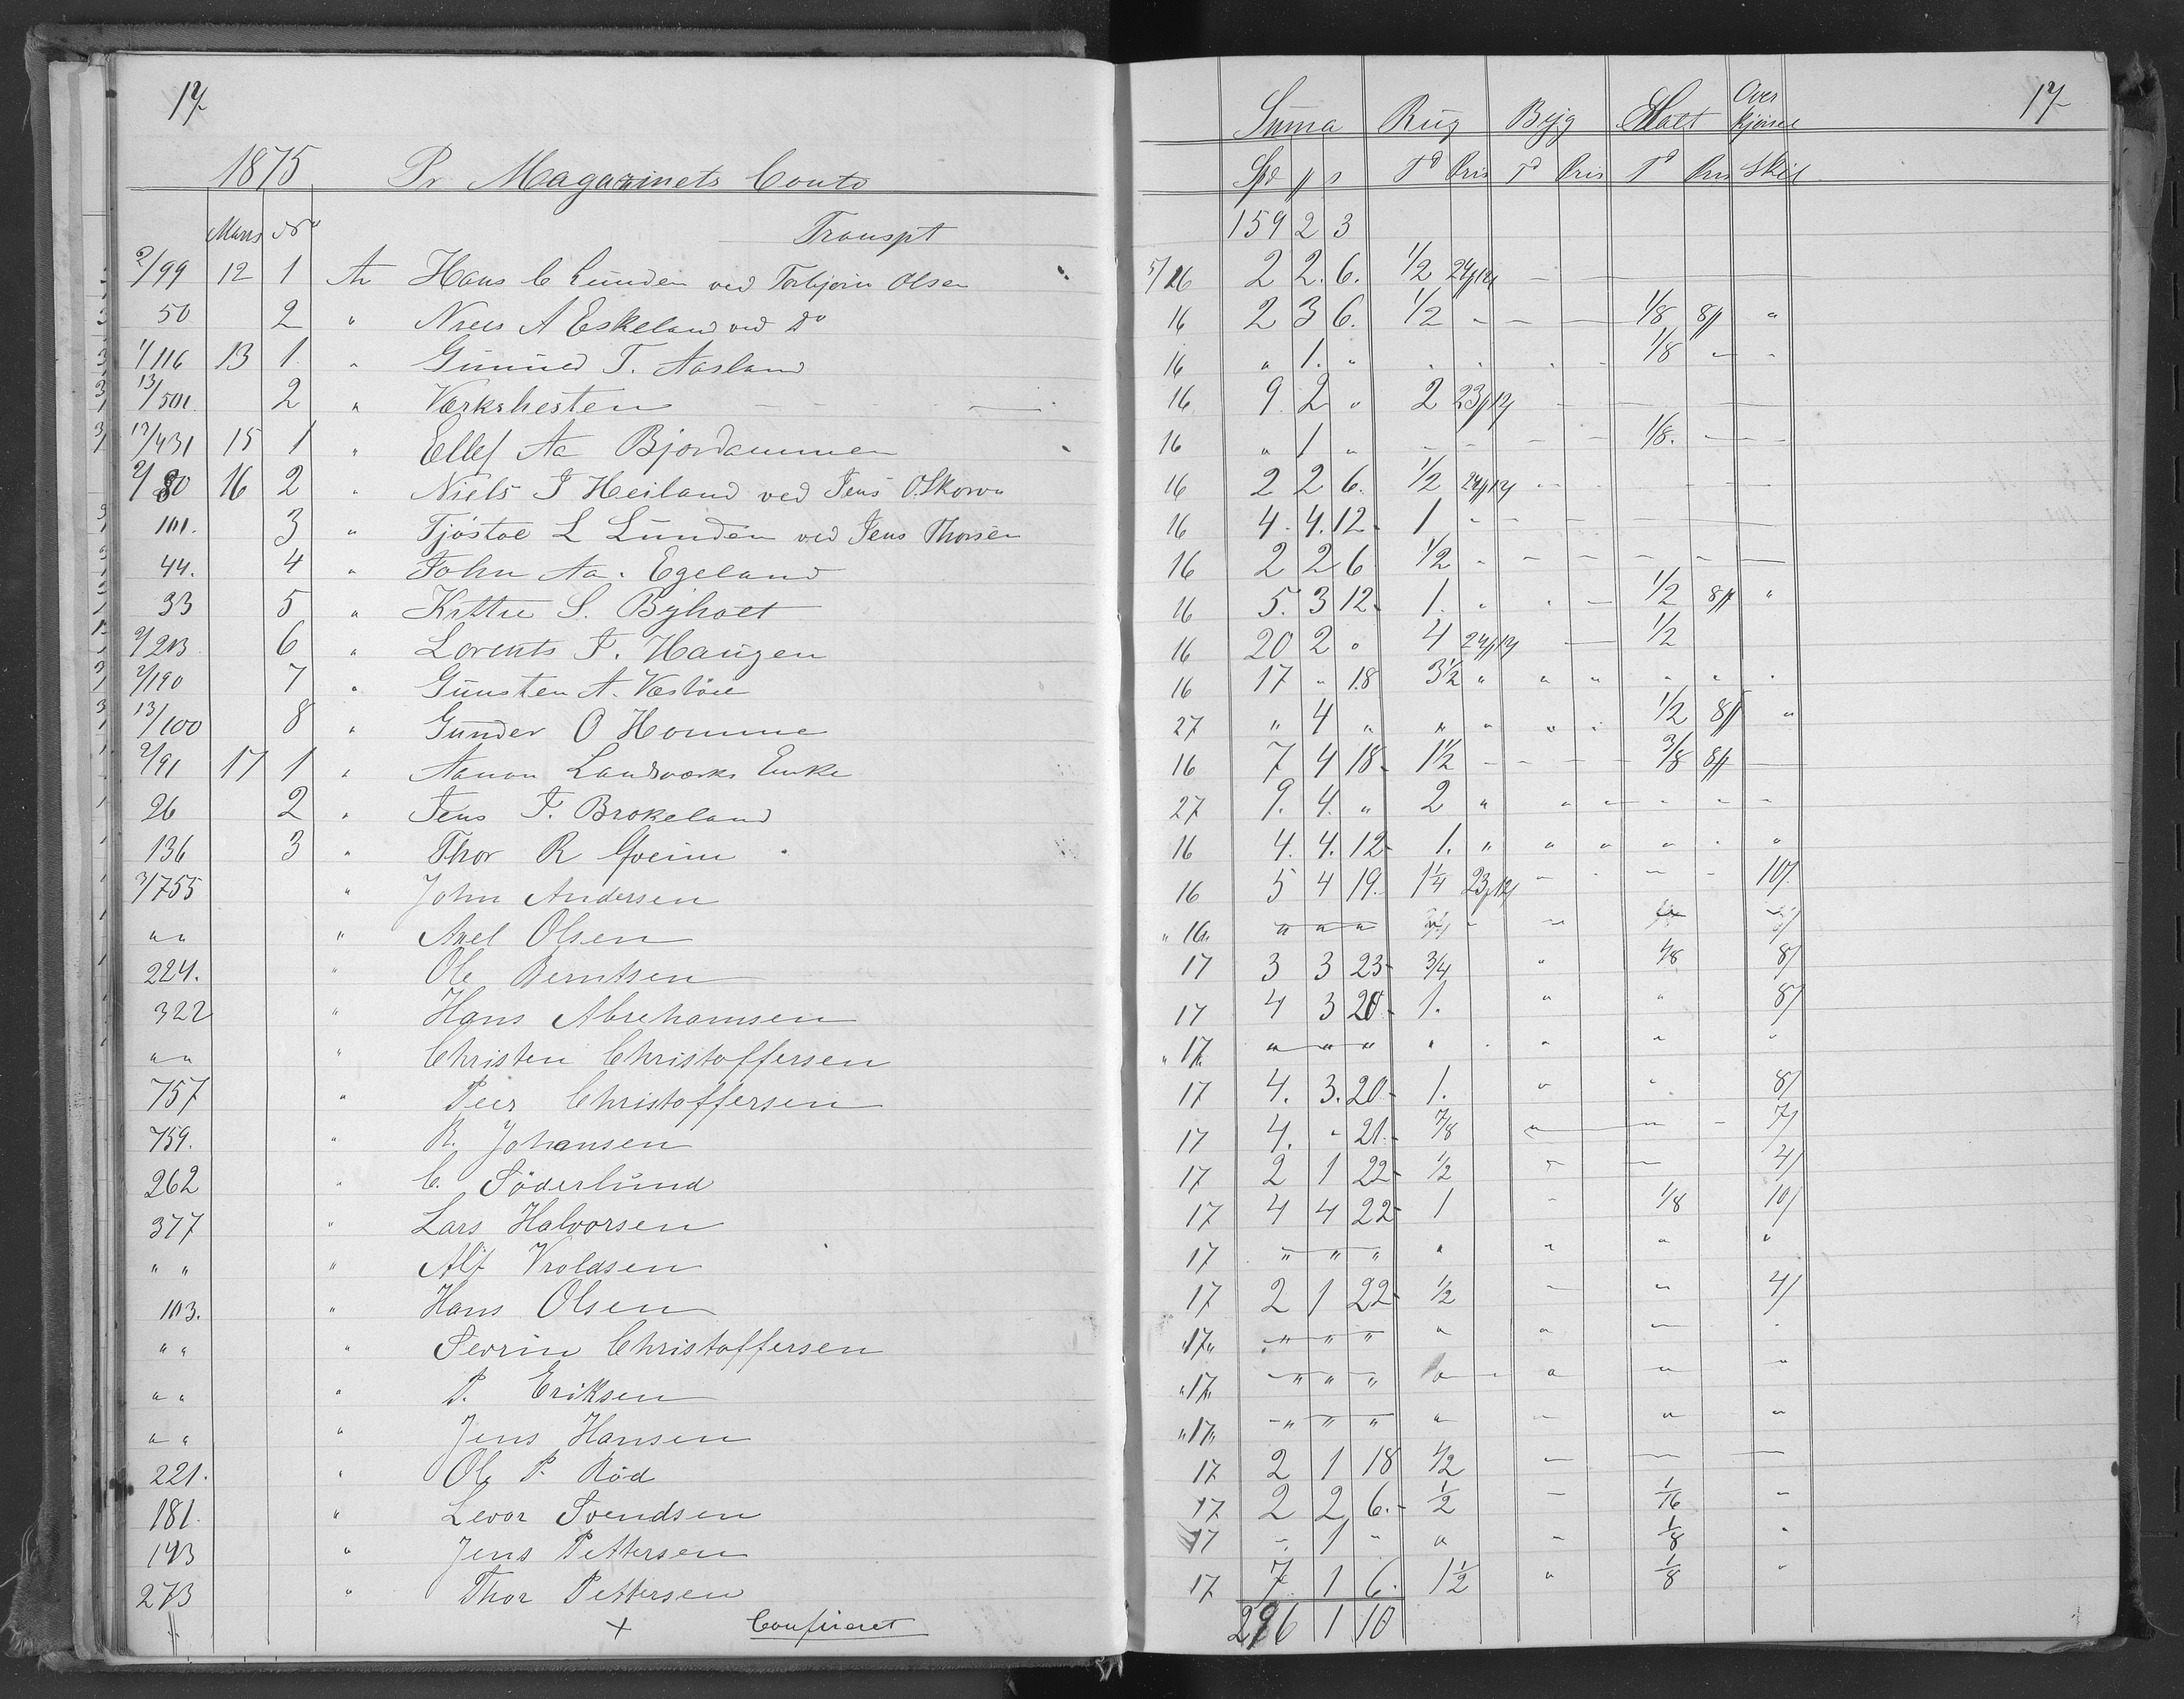 17
1875 Pr Magazinets Conto
Marts No
Transpt
2/99 12 1 An Hans C Lunden ved Torbjørn Olsen
50 2 " Niels A Eskeland ved Do
1/116 13 1 " Gunuld T. Aasland
13/501 2 " Værkshesten
12/431 15 1 " Ellef Aa Bjordammen
2/80 16 2 " Niels J Heiland ved Jens O. Skorva
101. 3 " Tjöstol L Lunden ved Jens Thorsen
44. 4 " John Aa. Egeland
33 5 " Kittil S. Byholt
2/213 6 " Lorents J. Haugen
2/190 7 " Gunsten A. Vestöl
13/100 8 " Gunder O Homme
2/91 17 1 " Aanon Landsværks Enke
26 2 " Jens J. Brokeland
136 3 " Thor R Goeim
3/755 " John Andersen
" " " Axel Olsen
224. " Ole Berntsen
322 " Hans Abrehamsen
" " " Christen Christoffersen
757 " Peer Christoffersen
759. " R. Johansen
262 " C. Söderlund
377 " Lars Halvorsen
" " " Alf Vroldsen
103. " Hans Olsen
" " " Sevrin Christoffersen
" " " P. Eriksen
" " " Jens Hansen
221. " Ole P. Röd
181. " Levor Svendsen
143 " Jens Pettersen
273 " Thor Pettersen
+ Confireret
17
Suma Rug Byg Malt Over kjørsel
Spd ß Td Pris Td Pris Td Pris Skil
159 2 3
5/16 2 2. 6. 1/2 24/12
16 2 3 6. 1/2 - - - 1/8 8ß "
16 " 1. " . . . . 1/8 - -
16 9. 2 " 2 23/12 -
16 " 1 " - - - - 1/8. - -
16 2 2 6. 1/2 24/12 - -
16 4. 4. 12. 1 - -
16 2 2 6 1/2 - - - - -
16 5. 3 12. 1. " " - 1/2 8ß "
16 20 2 " 4 24/12 - 1/2
16 17 " 18 3 1/2 " " " " " "
27 " 4 " " " " " 1/2 8ß "
16 7 4 18. 1 1/2 - - - - 3/8 8ß -
27 9. 4. " 2 " " " - - -
16 4. 4. 12 1. " " " " . "
16 5 4 19. 1 1/4 23/12 - - - - 10/
" 16 " " " "
17 3 3 23 3/4 " 1/8 8/
17 4 3 20 1. " " 8/
" 17 " " " " " " " "
17 4. 3. 20 1. " " 8/
17 4. " 21. 7/8 " " - 7/
17 2 1 22 1/2 - - 4/
17 4 4 22 1 - 1/8 10/
17 " " " " " " "
17 2 1 22 1/2 - " 4/
" 17 " " " " " " - .
" 17 " " " " " " "
" 17 " " " " " - " "
17 2 1 18 1/2 - - -
17 2 2 6. 1/2 - 1/16 -
17 - 1 " " - 1/8 "
17 7 1 6. 1 1/2 " 1/8 "
296 1 10